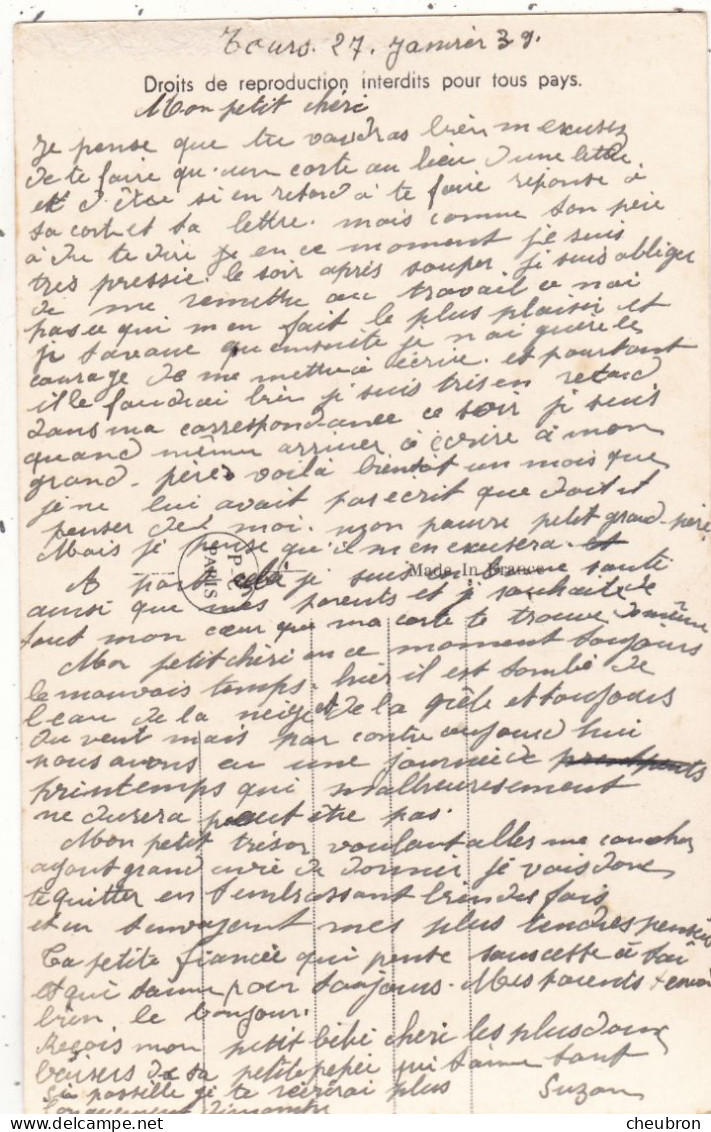 Tours. 27. Janvier 39.
Droits de reproduction interdits pour tous pays.
Mon petit chéri
Je pense que tu voudras bien m excuser
de te faire qu'une carte au lieu d'une lettre
et d'être si en retard à te faire réponse à
ta carte et ta lettre. mais comme ton père
à du te dire je en ce moment je suis
très pressée. le soir après souper je suis obliger
de me remettre au travail ce n'ai
pas ce qui m en fait le plus plaisir et
je t'avoue qu'ensuite je n'ai guère le
courage de me mettre à écrire. et pourtant
il le faudrai bien je suis très en retard
dans ma correspondance ce soir je suis
quand même arriver à écrire à mon
grand-père voilà bientôt un mois que
je ne lui avait pas écrit que doit il
penser de moi. mon pauvre petit grand-père
Mais je pense qu'il m en excusera. et
PC
PARIS
Made In France
A part cela je suis en bonne santé
ainsi que mes parents et je souhaite de
tout mon cœur que ma carte te trouve de même
Mon petit chéri en ce moment toujours
le mauvais temps. hier il est tombé de
l'eau de la neige et de la grêle et toujours
du vent mais par contre aujourd hui
nous avons eu une journée de printemps
printemps qui malheureusement
ne durera peut être pas.
Mon petit trésor voulant aller me coucher
ayant grand envie de dormir je vais donc
te quitter en t'embrassant bien des fois
et en t'envoyant mes plus tendres pensées
Ta petite fiancée qui pense sans cesse à toi
et qui t'aime pour toujours. Mes parents t envoi
bien le bonjour.
Reçois mon petit bébé chéri les plus doux
baisers de ta petite pepée qui t'aime tant
Si possible je te récrirai plus Suzon
longuement dimanche